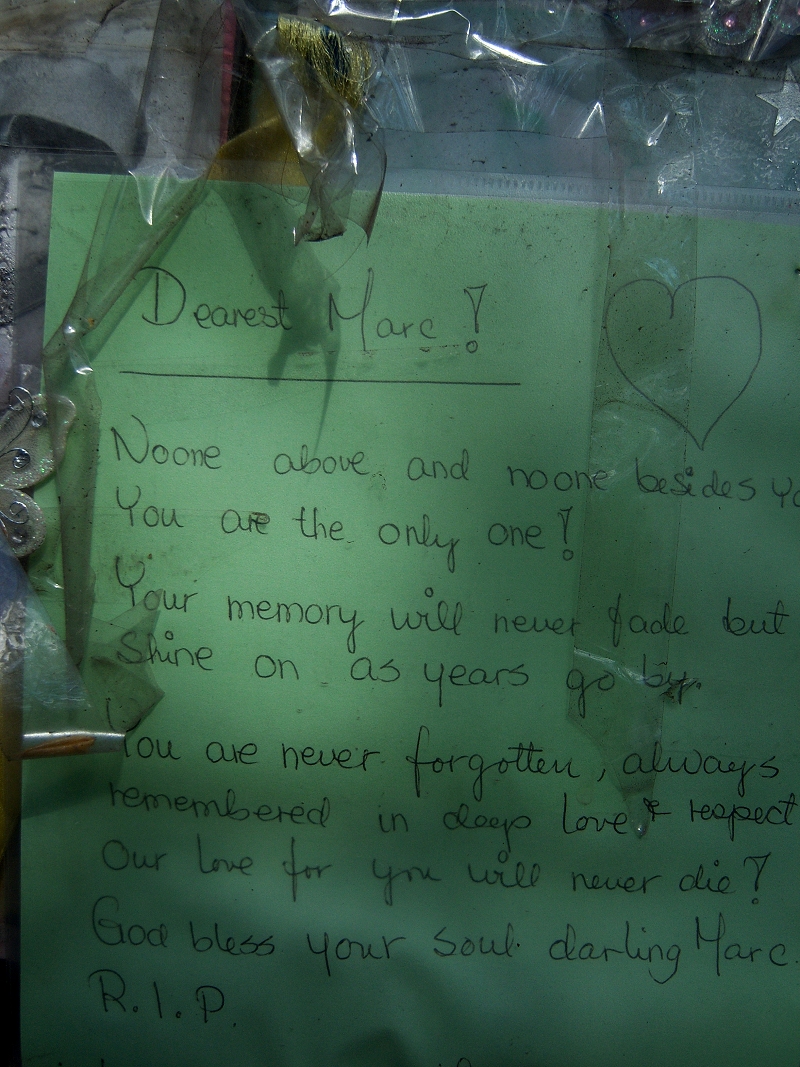 Dearest Marc!
Noone above and noone besides Yo
You are the only one!
Your memory will never fade but
Shine on as years go by.
You are never forgotten, always
remembered in deep love & respect
Our love for you will never die!
God bless your soul darling Marc.
R.I.P.